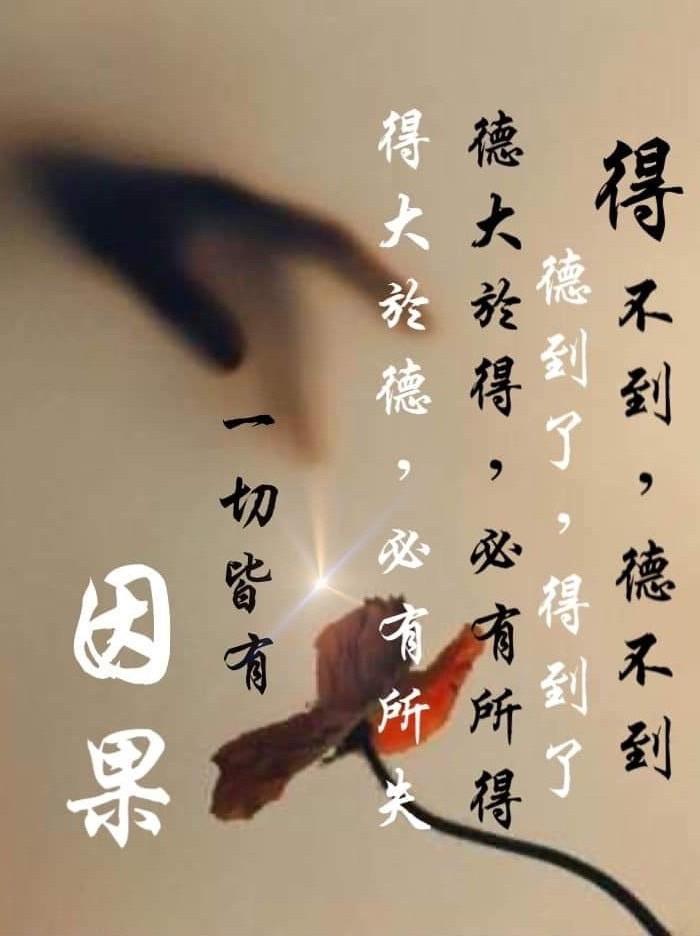 得不到，德不到
德到了，得到了
德大於得，必有所得
得大於德，必有所失
一切皆有
因果